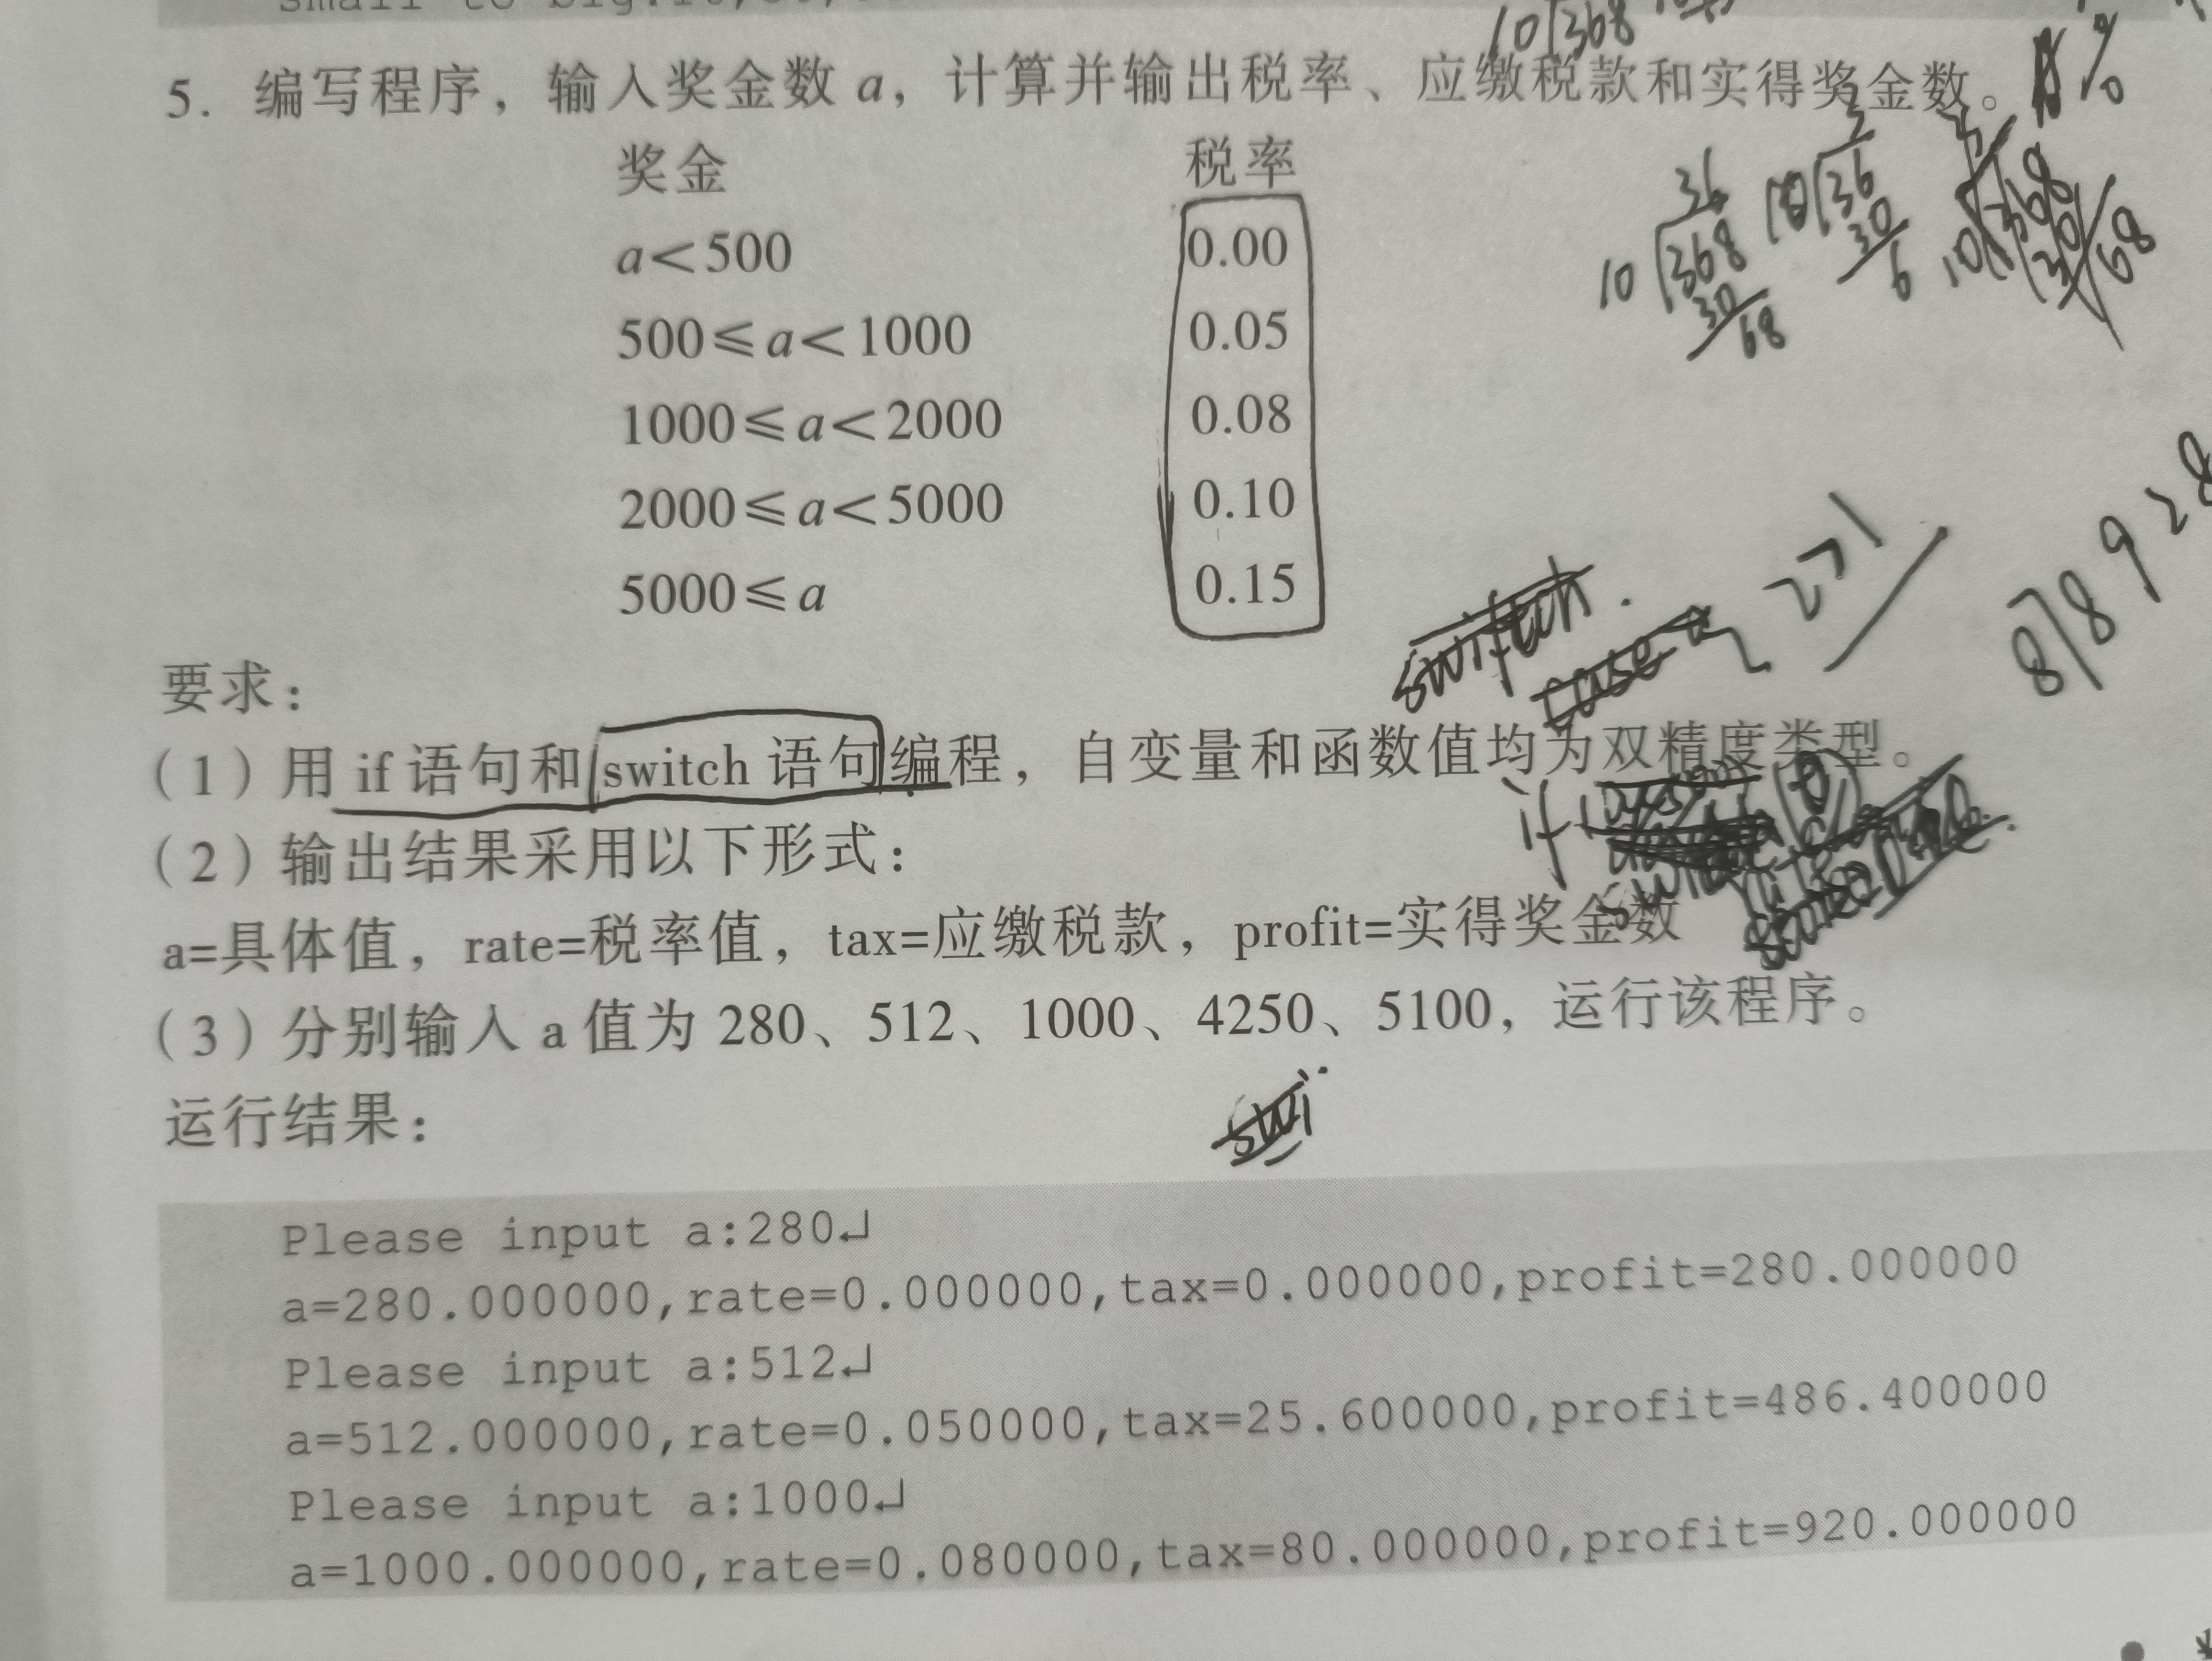 small to big:
5. 编写程序，输入奖金数 a，计算并输出税率、应缴税款和实得奖金数。
奖金 税率
a<500 0.00
500≤a<1000 0.05
1000≤a<2000 0.08
2000≤a<5000 0.10
5000≤a 0.15
要求：
（1）用 if 语句和 switch 语句编程，自变量和函数值均为双精度类型。
（2）输出结果采用以下形式：
a=具体值，rate=税率值，tax=应缴税款，profit=实得奖金数
（3）分别输入 a 值为 280、512、1000、4250、5100，运行该程序。
运行结果：
Please input a:280↵
a=280.000000,rate=0.000000,tax=0.000000,profit=280.000000
Please input a:512↵
a=512.000000,rate=0.050000,tax=25.600000,profit=486.400000
Please input a:1000↵
a=1000.000000,rate=0.080000,tax=80.000000,profit=920.000000
10 368
36
10 368
30
68
36
30
6
10 368
68
switch
case a
8 8 9 2 8
if
swi